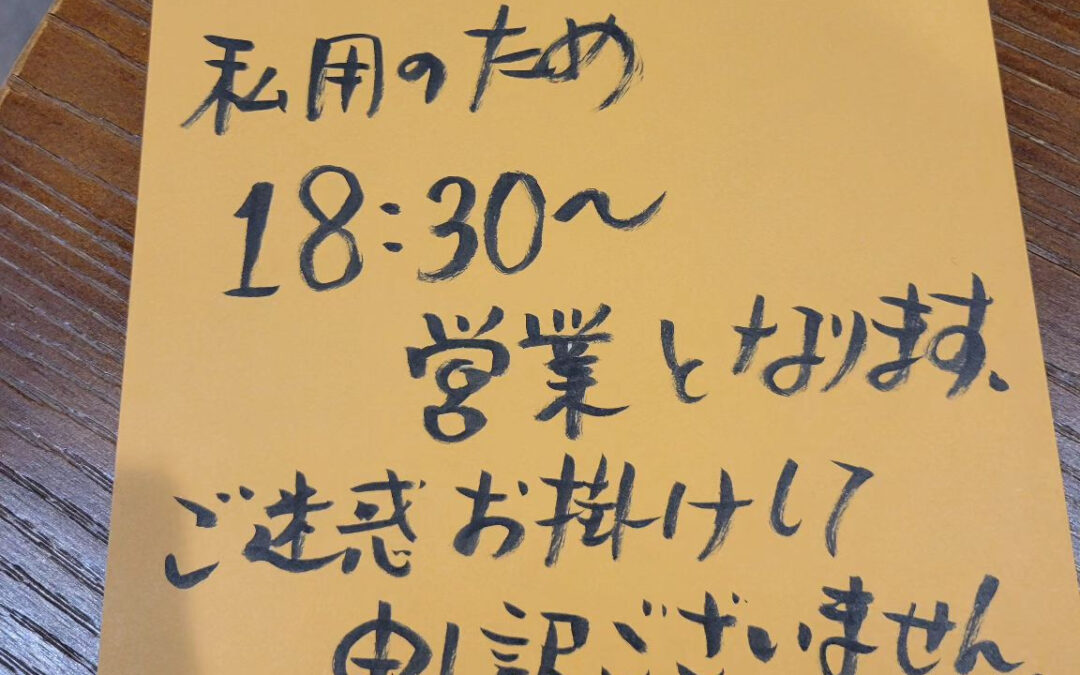 私用のため
18:30〜
営業となります、
ご迷惑お掛けして
申し訳ございません。